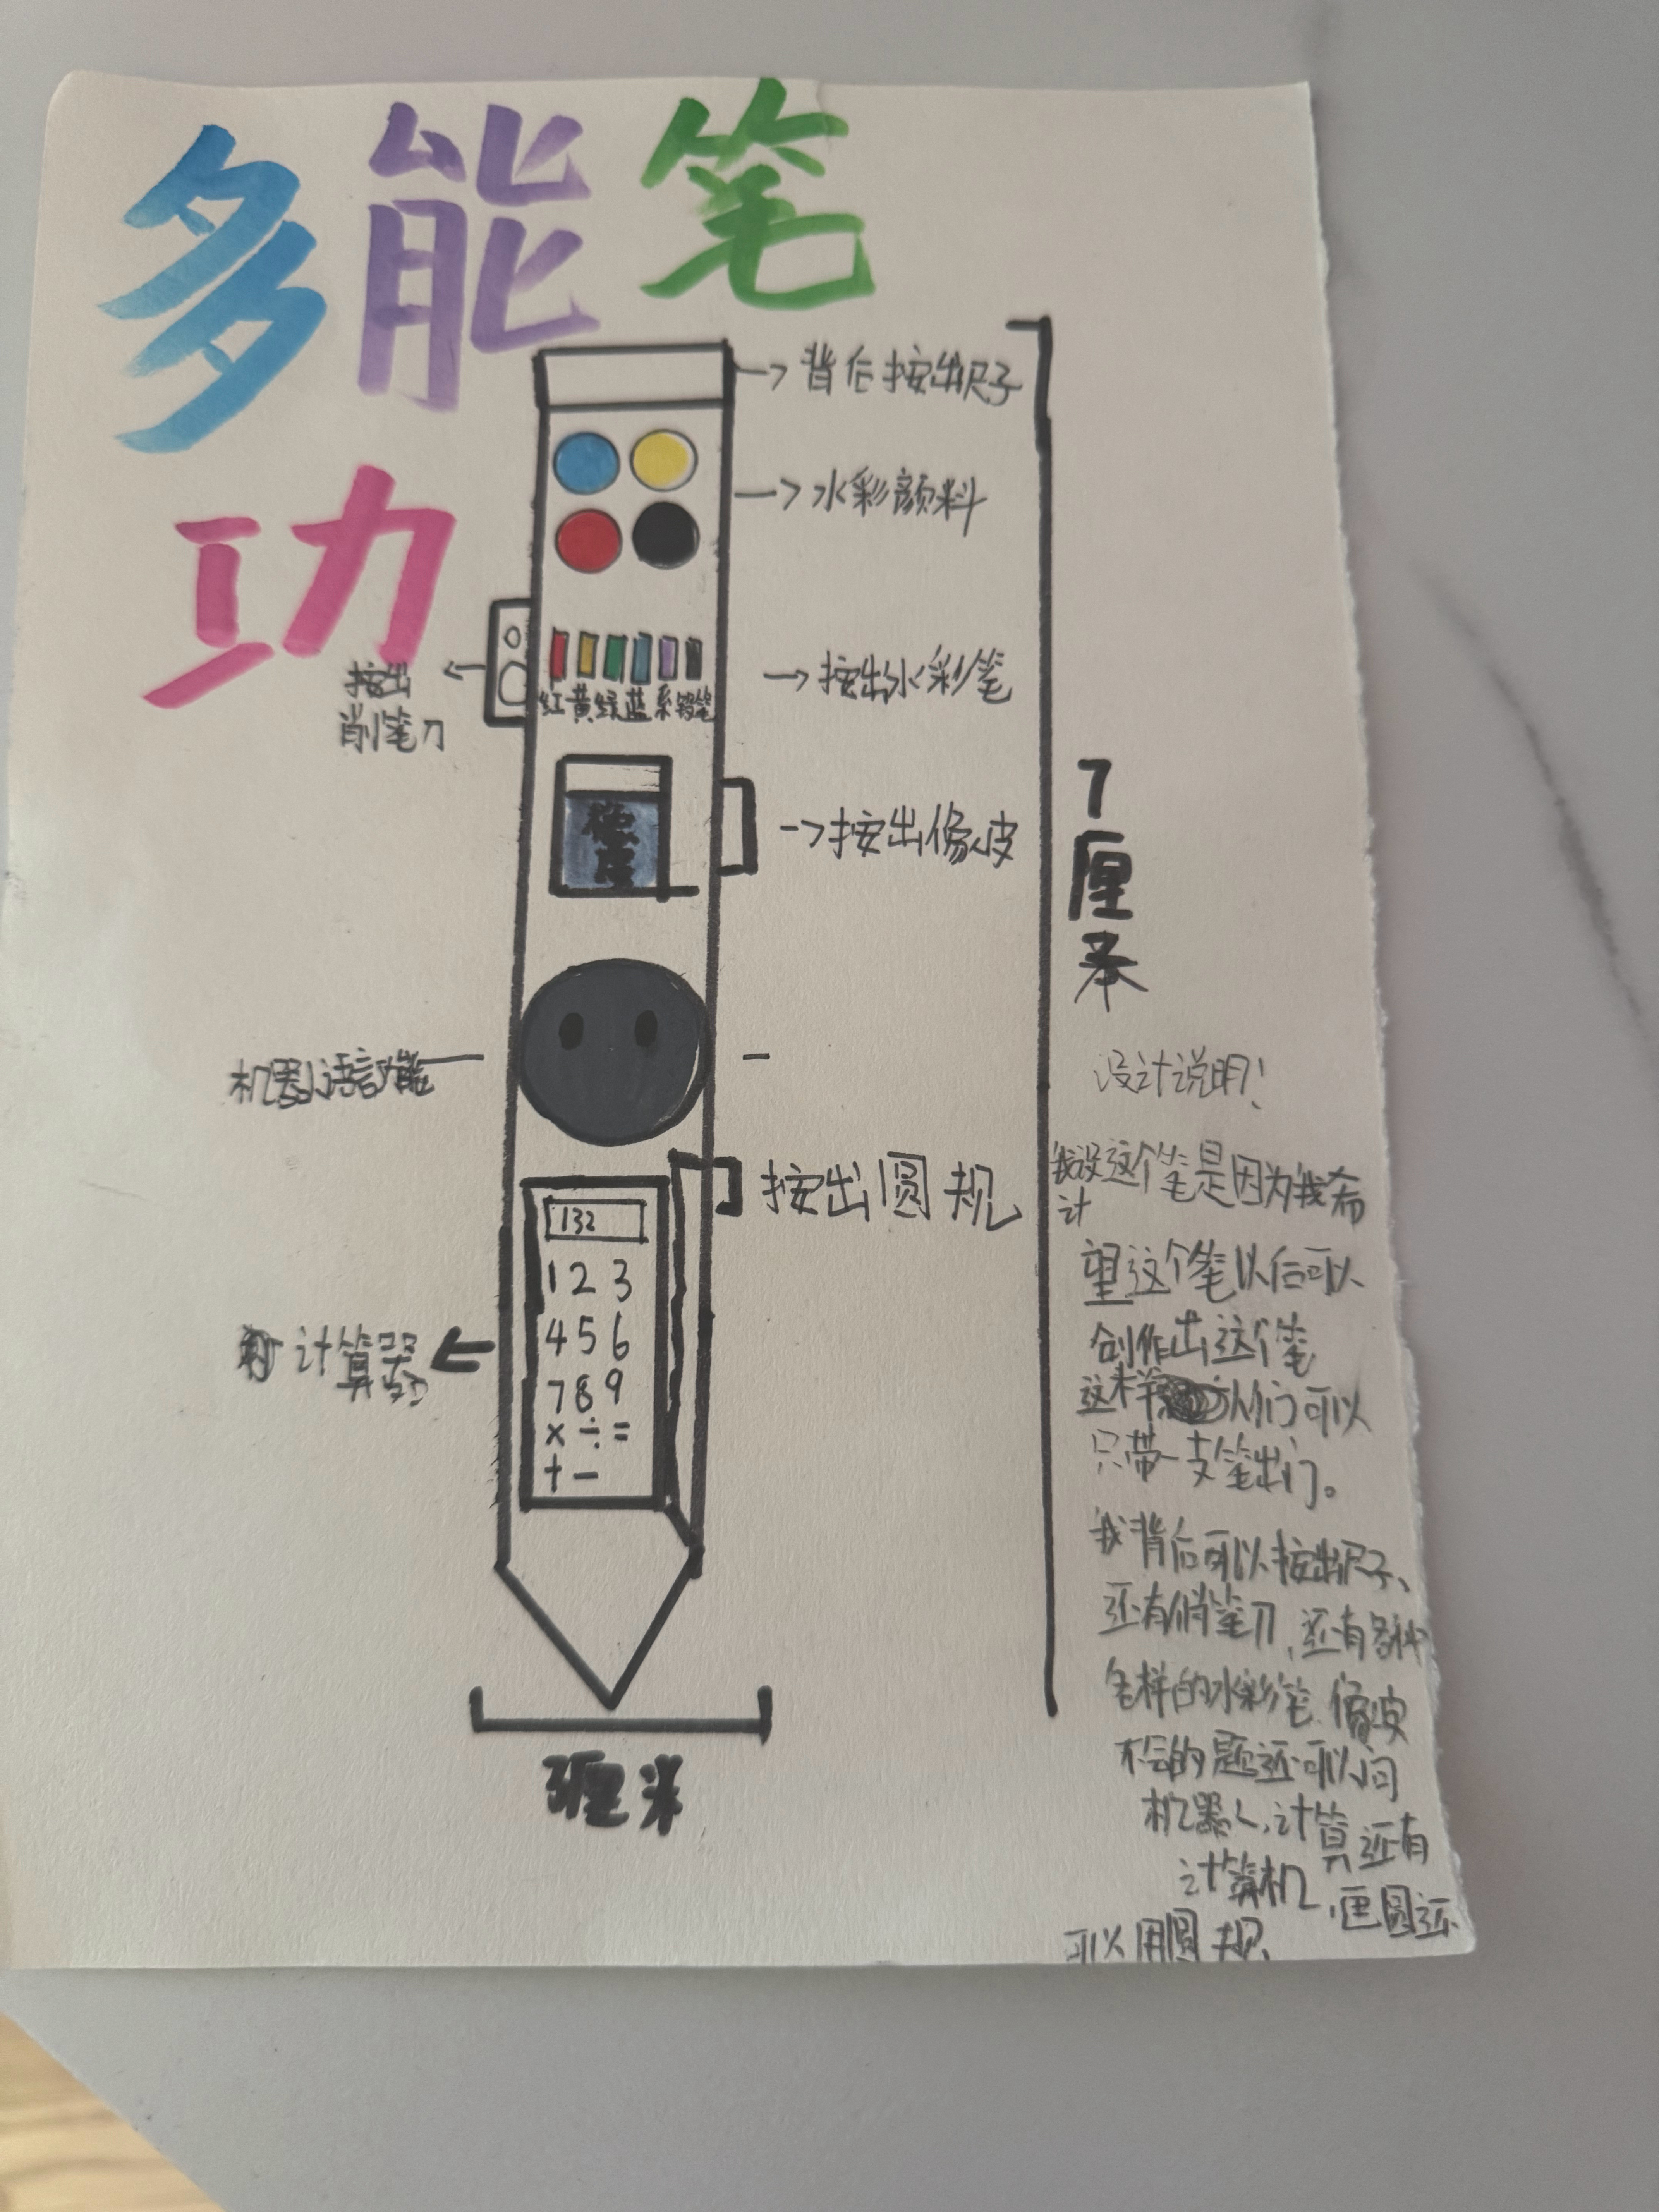 多能笔
功
背后按出尺子
水彩颜料
按出
削笔刀
红黄绿蓝系铅笔
按出水彩笔
橡皮
按出像皮
7厘米
机器人语言功能
按出圆规
132
1 2 3
4 5 6
7 8 9
× ÷ =
+ −
计算器
3厘米
设计说明!
我设计这个笔是因为我希
望这个笔以后可以
创作出这个笔
这样人们可以
只带一支笔出门。
我背后可以按出尺子、
还有削笔刀,还有各种
各样的水彩笔、像皮
不会的题还可以问
机器人,计算还有
计算机,画圆还
可以用圆规、